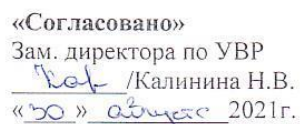 «Согласовано»
Зам. директора по УВР
/Калинина Н.В.
«30» августа 2021г.